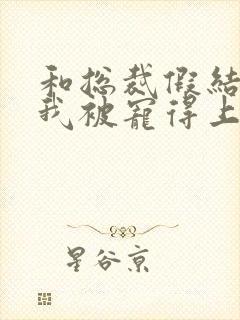 和总裁假结
我被宠得上
星谷京